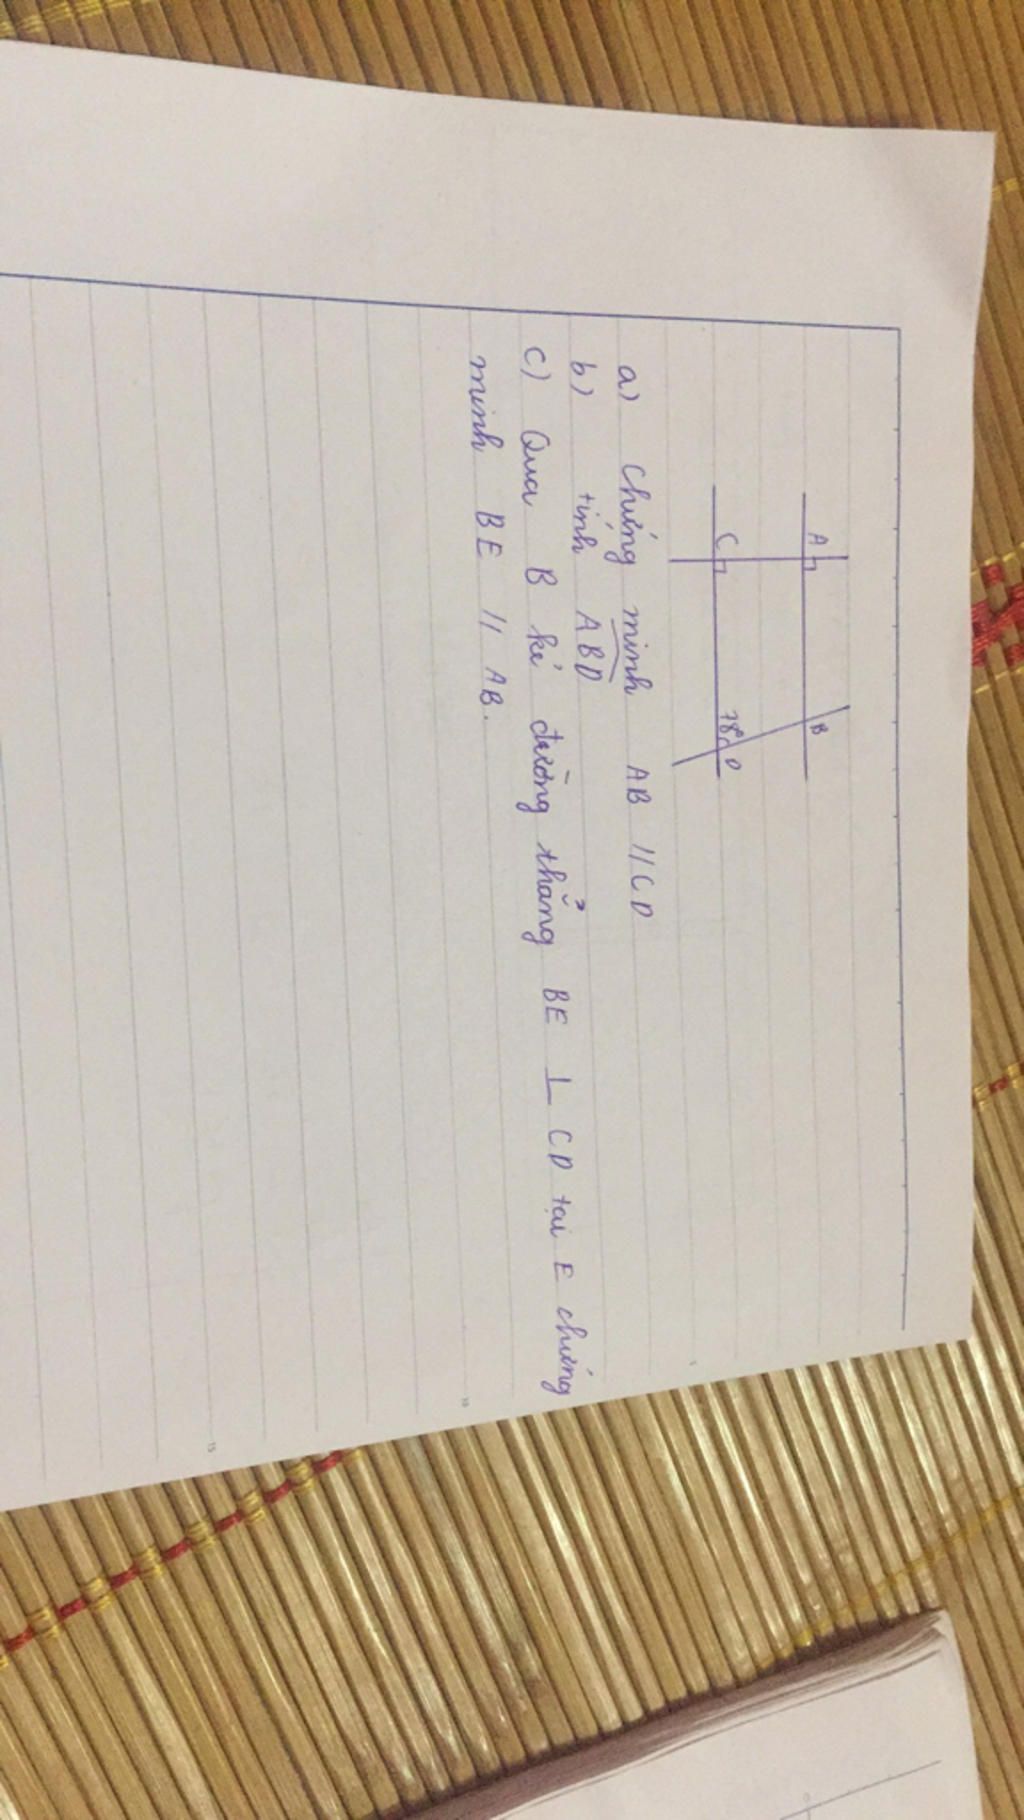 A
B
C
78°
D
a) Chứng minh AB // CD
b) tính ABD
c) Qua B kẻ đường thẳng BE ⊥ CD tại E chứng
minh BE // AB.
5
10
15